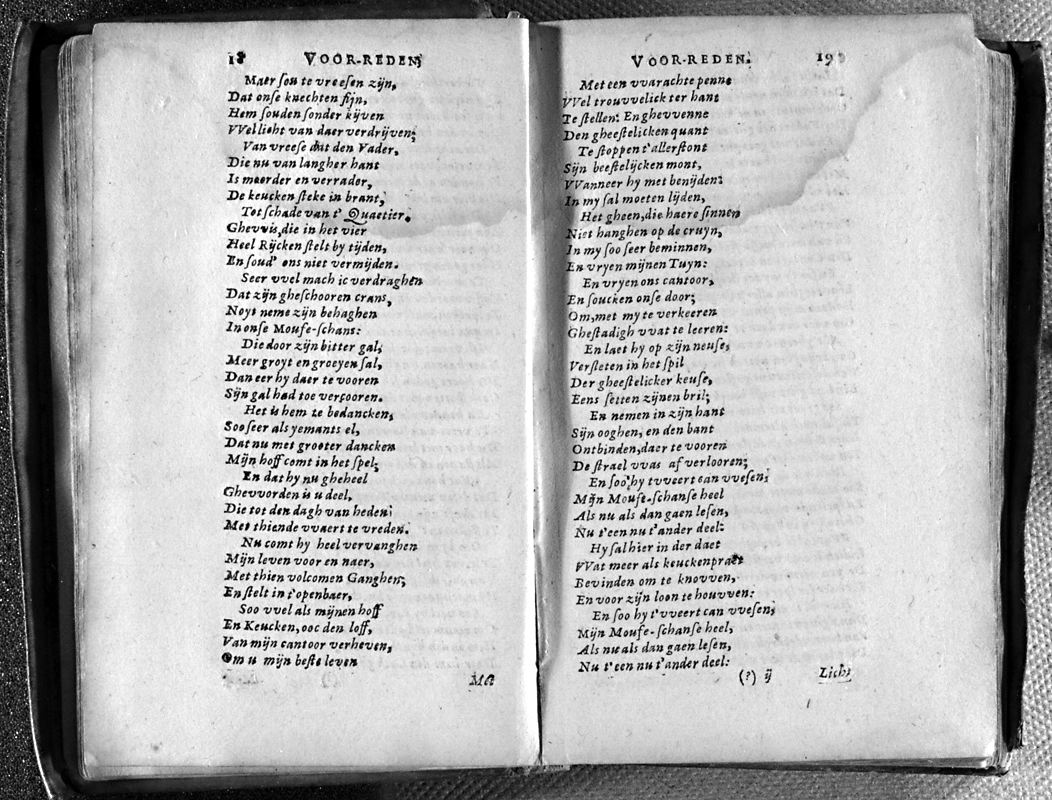 18 VOOR-REDEN;
Maer sou te vreesen zijn,
Dat onse knechten fijn,
Hem souden sonder kijven
VVellicht van daer verdrijven;
Van vreese dat den Vader,
Die nu van langher hant
Is moorder en verrader,
De keucken steke in brant,
Tot schade van t' Quaetier.
Ghevvis, die in het vier
Heel Rijcken stelt by tijden,
En soud' ons niet vermijden.
Seer vvel mach ic verdraghen
Dat zijn gheschooren crans,
Noyt neme zijn behaghen
In onse Moufe-schans:
Die door zijn bitter gal,
Meer groyt en groeyen sal,
Dan eer hy daer te vooren
Sijn gal had toe vercooren.
Het is hem te bedancken,
Soo seer als yemants el,
Dat nu met grooter dancken
Mijn hoff comt in het spel;
En dat hy nu gheheel
Ghevvorden is u deel,
Die tot den dagh van heden
Met thiende vvaert te vreden.
Nu comt hy heel vervanghen
Mijn leven voor en naer,
Met thien volcomen Ganghen;
En stelt in t'openbaer,
Soo vvel als mijnen hoff
En Keucken, ooc den loff,
Van mijn cantoor verheven,
Om u mijn beste leven
Met
VOOR-REDEN. 19
Met een vvarachte penne
VVel trouvvelick ter hant
Te stellen: En ghevvenne
Den gheestelicken quant
Te stoppen t'allerstont
Sijn beestelijcken mont,
VVanneer hy met benijden
In my sal moeten lijden,
Het gheen, die haere sinnen
Niet hanghen op de cruyn,
In my soo seer beminnen,
En vryen mijnen Tuyn:
En vryen ons cantoor,
En soucken onse door;
Om, met my te verkeeren
Ghestadigh vvat te leeren:
En laet hy op zijn neuse,
Versleten in het spil
Der gheestelicker keuse,
Eens setten zijnen bril;
En nemen in zijn hant
Sijn ooghen, en den bant
Ontbinden, daer te vooren
De strael vvas af verlooren;
En soo hy tvveert can vvesen;
Mijn Moufe-schanse heel
Als nu als dan gaen lesen,
Nu t'een nu t'ander deel:
Hy sal hier in der daet
VVat meer als keuckenpraet
Bevinden om te knovven,
En voor zijn loon te houvven:
En soo hy t'vveert can vvesen;
Mijn Moufe-schanse heel,
Als nu als dan gaen lesen,
Nu t'een nu t'ander deel:
(?) ij Licht